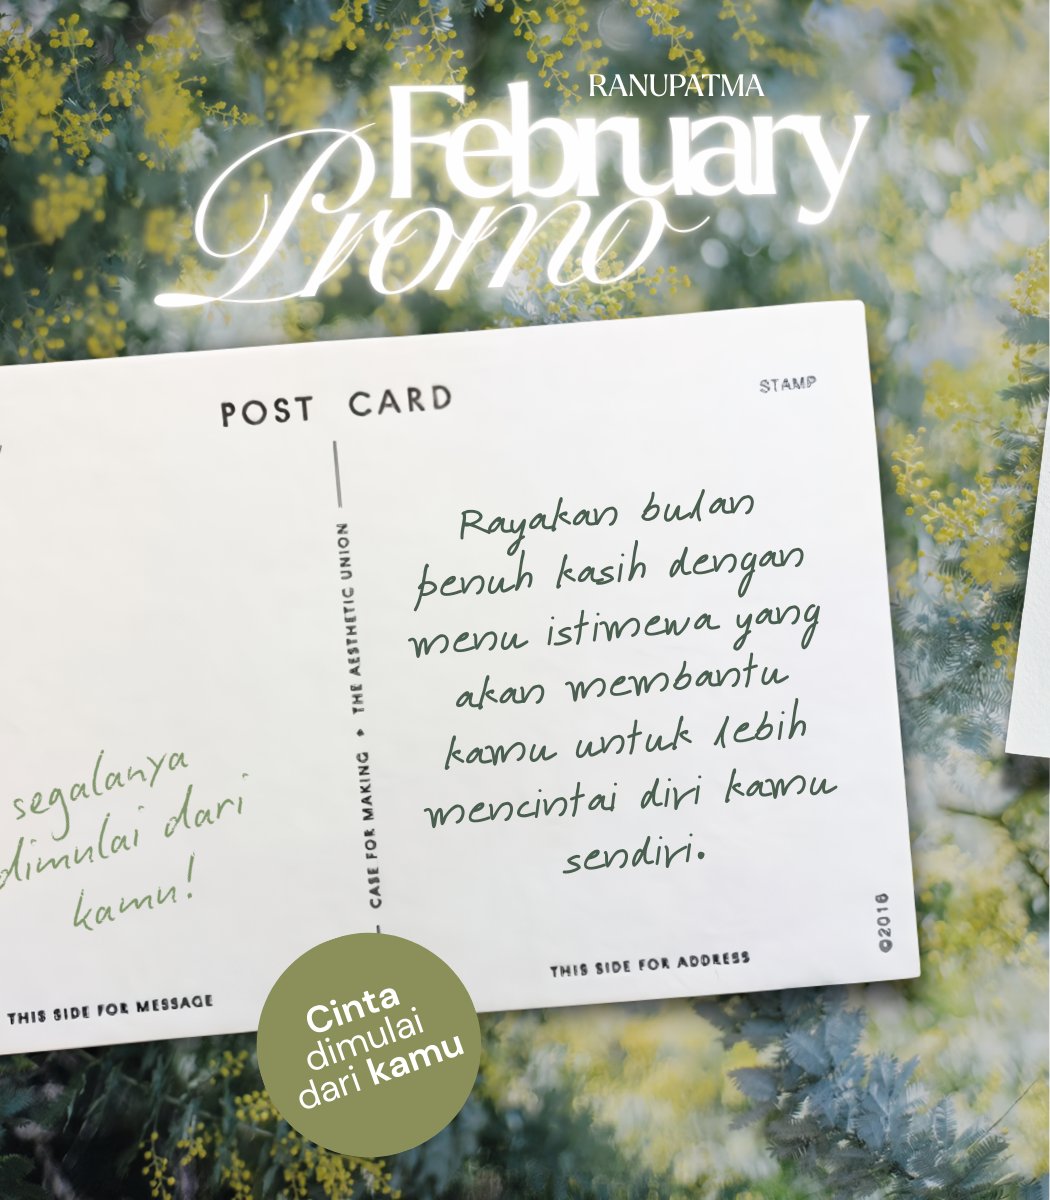 RANUPATMA
February
Promo
POST CARD
STAMP
Rayakan bulan
penuh kasih dengan
menu istimewa yang
akan membantu
kamu untuk lebih
mencintai diri kamu
sendiri.
CASE FOR MAKING ♦ THE AESTHETIC UNION
segalanya
dimulai dari
kamu!
©2016
THIS SIDE FOR ADDRESS
THIS SIDE FOR MESSAGE
Cinta
dimulai
dari kamu